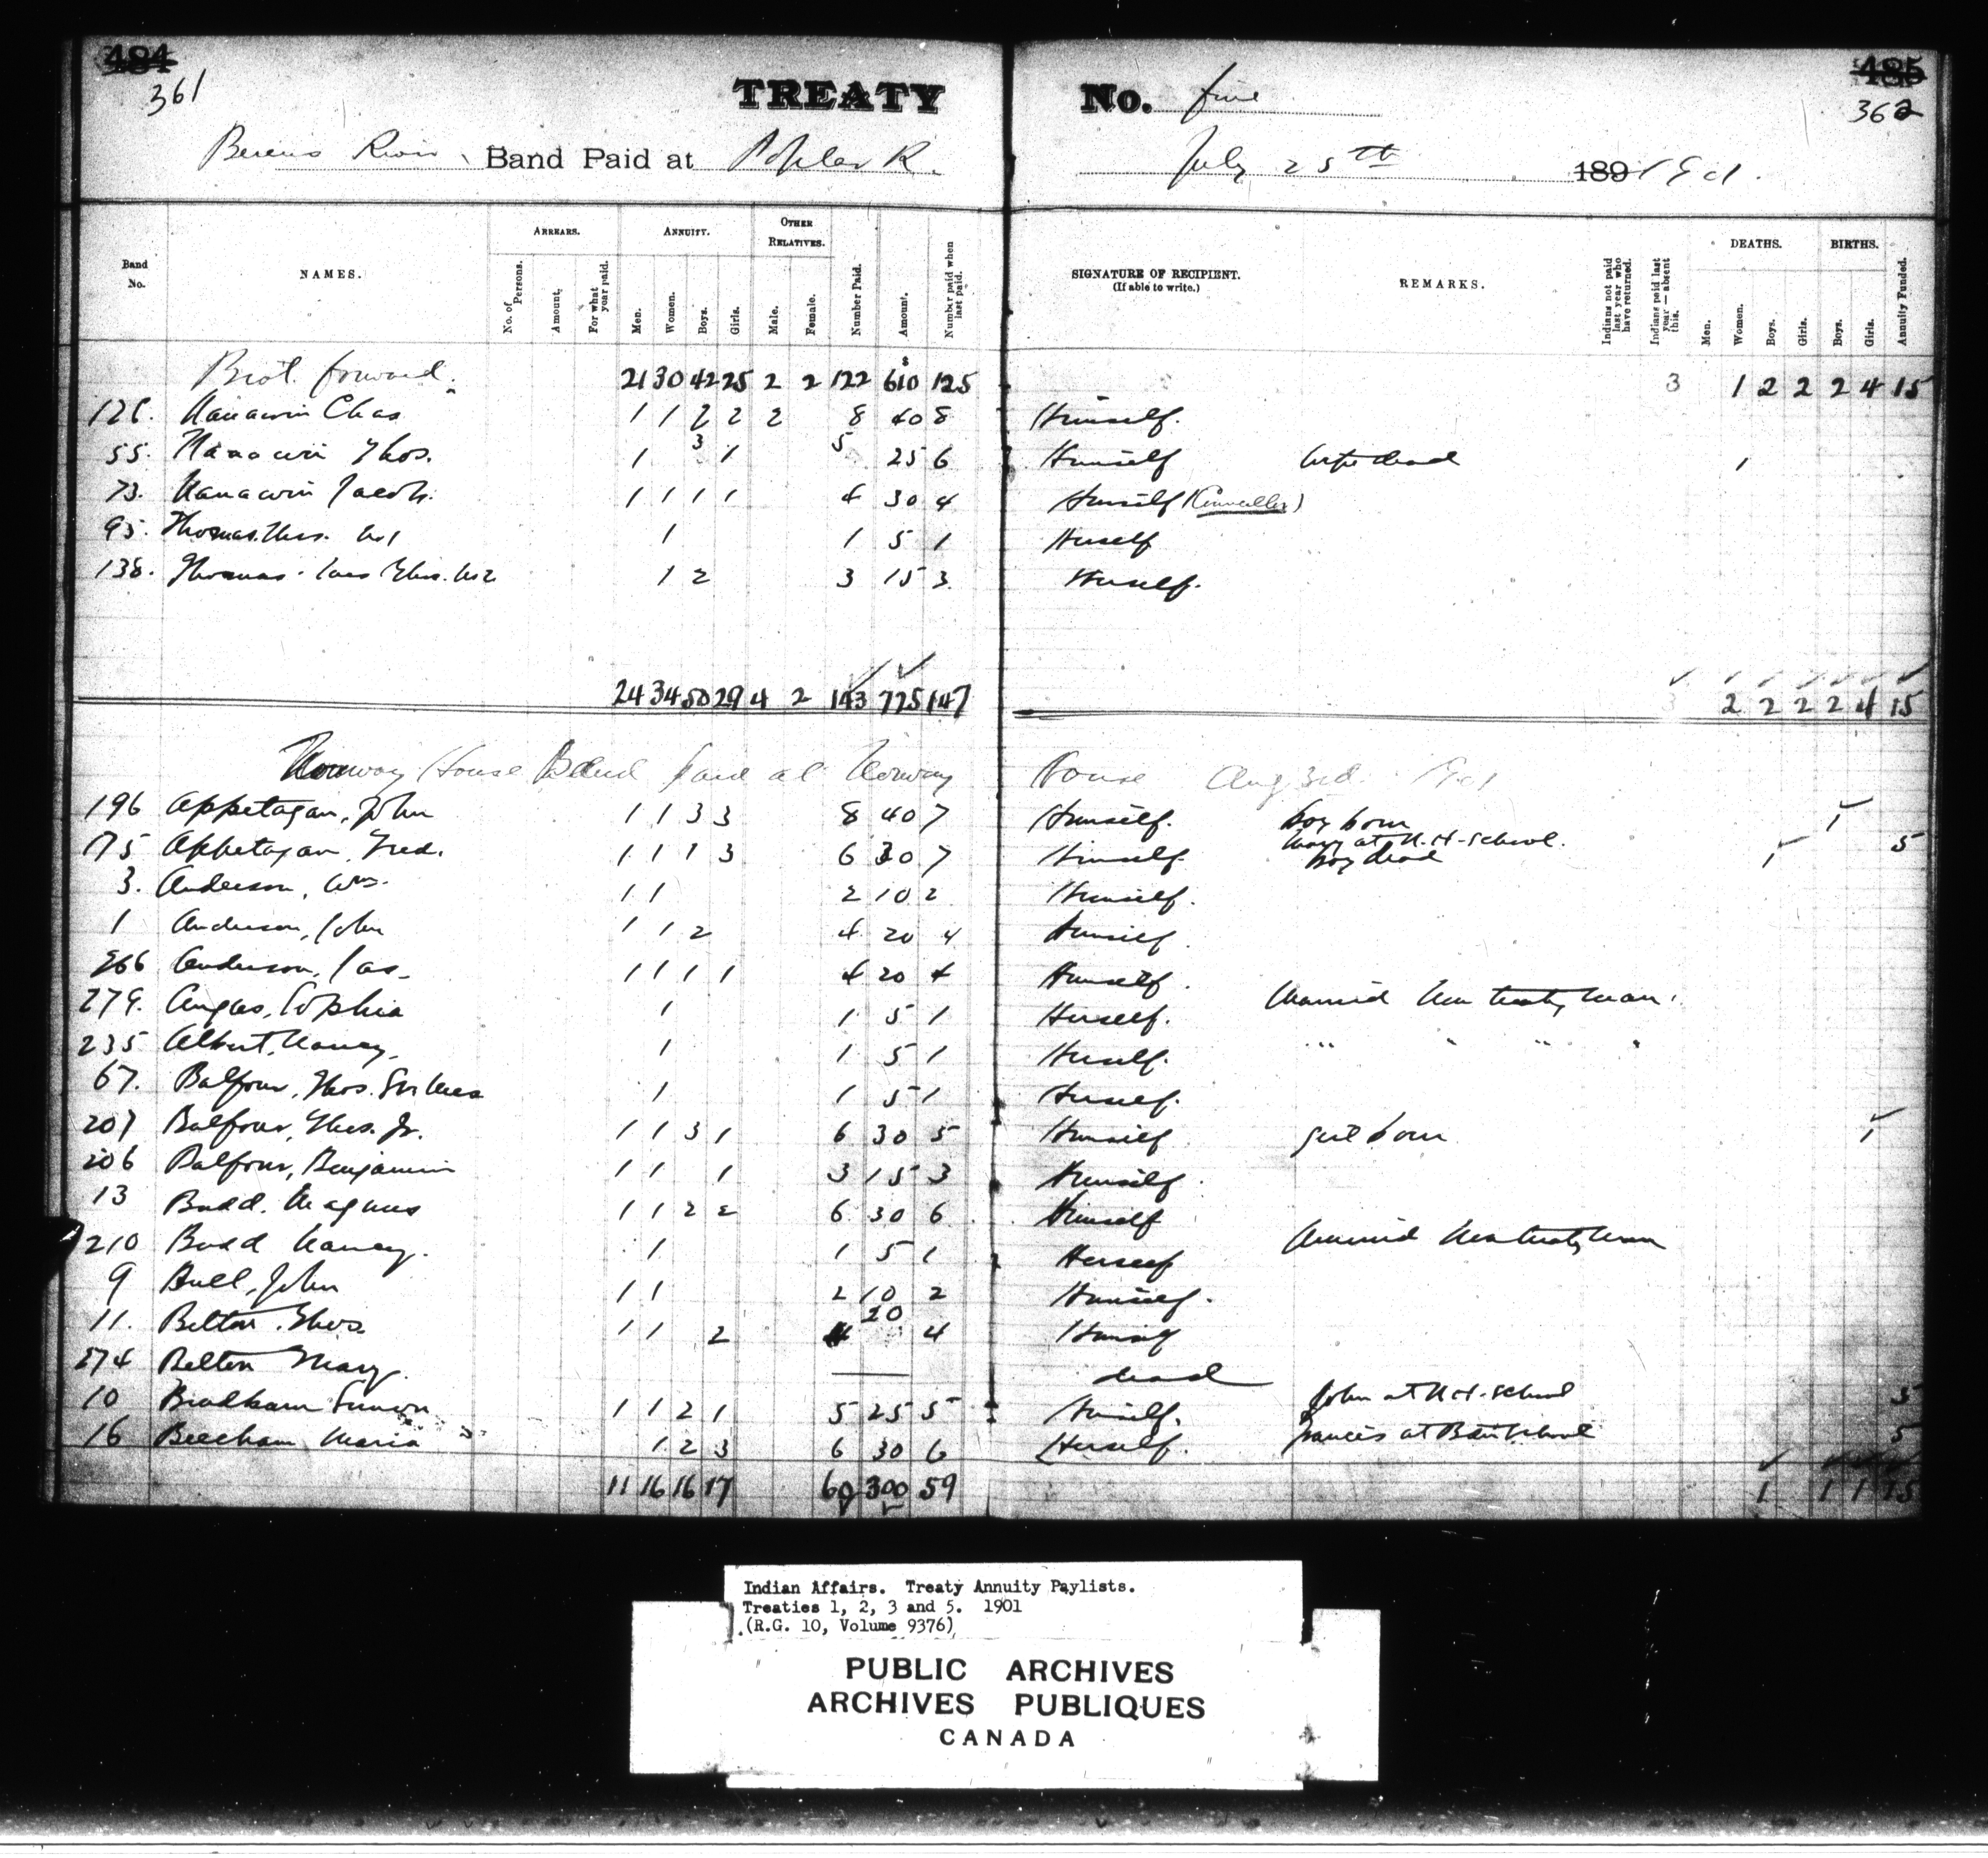 484 485
361 362
TREATY No. five
Berens River Band Paid at Poplar R. July 25th 189 1901.
Band No. NAMES. ARREARS. No. of Persons. Amount. For what year paid. ANNUITY. Men. Women. Boys. Girls. OTHER RELATIVES. Male. Female. Number Paid. Amount. Number paid when last paid. SIGNATURE OF RECIPIENT. (If able to write.) REMARKS. Indians not paid last year who have returned. Indians paid last year—absent this. DEATHS. Men. Women. Boys. Girls. BIRTHS. Boys. Girls. Annuity Funded.
Brot. forward. 21 30 42 25 2 2 122 $ 610 125 3 1 2 2 2 4 15
126. Nanawin Chas 1 1 2 2 2 8 40 8 Himself.
55. Nanawin Thos. 1 3 1 5 25 6 Himself wife dead 1
73. Nanawin Jacob. 1 1 1 1 4 30 4 Himself (Councillor)
95. Thomas. 1 1 5 1 Herself
138. Thomas. 1 2 3 15 3 Herself.
24 34 50 29 4 2 143 775 147 3 2 2 2 2 4 15
Norway House Band paid at Norway House Aug 3rd. 1901
196 Appetagan, John 1 1 3 3 8 40 7 Himself. boy born 1
175 Appetagan, Fred. 1 1 1 3 6 30 7 Himself. Mary at N.H. School. boy dead 1 5
3. Anderson, Wm. 1 1 2 10 2 Himself.
1 Anderson, John 1 1 2 4 20 4 Himself.
266 Anderson, Jas. 1 1 1 1 4 20 4 Himself.
279. Angus, Sophia 1 1 5 1 Herself. Married Non treaty man.
235 Albert, Nancy. 1 1 5 1 Herself. " " " "
67. Balfour, Thos. Sr. 1 1 5 1 Herself.
207 Balfour, Thos. Jr. 1 1 3 1 6 30 5 Himself girl born 1
206 Balfour, Benjamin 1 1 1 3 15 3 Himself.
13 Budd. Magnus 1 1 2 2 6 30 6 Himself
210 Budd Nancy. 1 1 5 1 Herself Married Non treaty man
9 Bull, John 1 1 2 10 2 Himself.
11. Belton, Thos. 1 1 2 4 20 4 Himself
274 Belton Mary. — dead
10 Bradham Simon 1 1 2 1 5 25 5 Himself. John at N.H. School 5
16 Beecham Maria 1 2 3 6 30 6 Herself. Francis at School 5
11 16 16 17 60 300 59 1 1 1 15
Indian Affairs. Treaty Annuity Paylists.
Treaties 1, 2, 3 and 5. 1901
(R.G. 10, Volume 9376)
PUBLIC ARCHIVES
ARCHIVES PUBLIQUES
CANADA